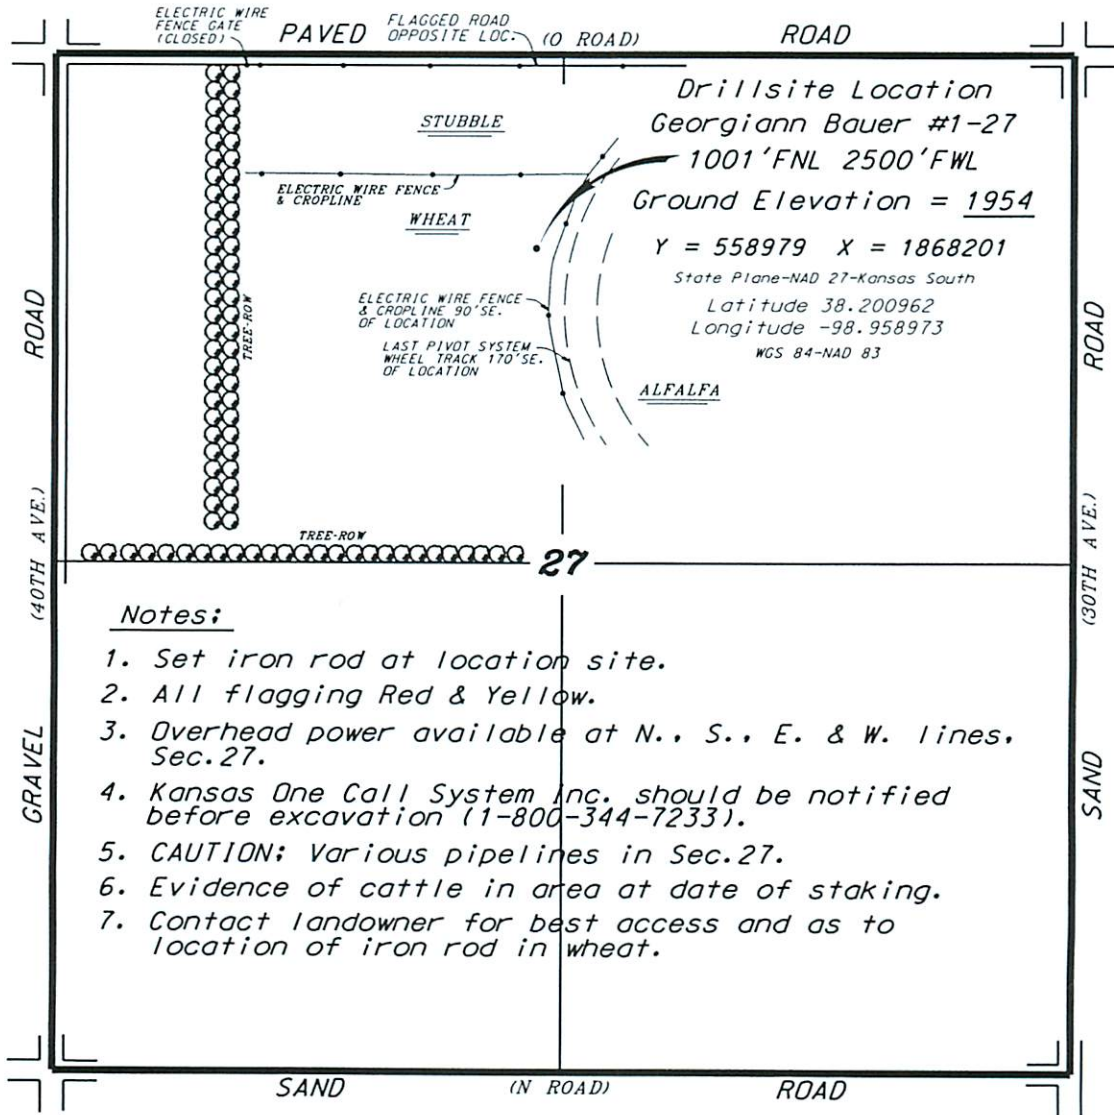 ELECTRIC WIRE
FENCE GATE
(CLOSED)
PAVED
FLAGGED ROAD
OPPOSITE LOC.
(O ROAD)
ROAD
Drillsite Location
Georgiann Bauer #1-27
1001'FNL 2500'FWL
Ground Elevation = 1954
Y = 558979 X = 1868201
State Plane-NAD 27-Kansas South
Latitude 38.200962
Longitude -98.958973
WGS 84-NAD 83
STUBBLE
ELECTRIC WIRE FENCE
& CROPLINE
WHEAT
ELECTRIC WIRE FENCE
& CROPLINE 90'SE.
OF LOCATION
LAST PIVOT SYSTEM
WHEEL TRACK 170'SE.
OF LOCATION
ALFALFA
TREE-ROW
TREE-ROW
27
ROAD
(40TH AVE.)
GRAVEL
ROAD
(30TH AVE.)
SAND
Notes:
1. Set iron rod at location site.
2. All flagging Red & Yellow.
3. Overhead power available at N., S., E. & W. lines,
Sec.27.
4. Kansas One Call System Inc. should be notified
before excavation (1-800-344-7233).
5. CAUTION: Various pipelines in Sec.27.
6. Evidence of cattle in area at date of staking.
7. Contact landowner for best access and as to
location of iron rod in wheat.
SAND
(N ROAD)
ROAD